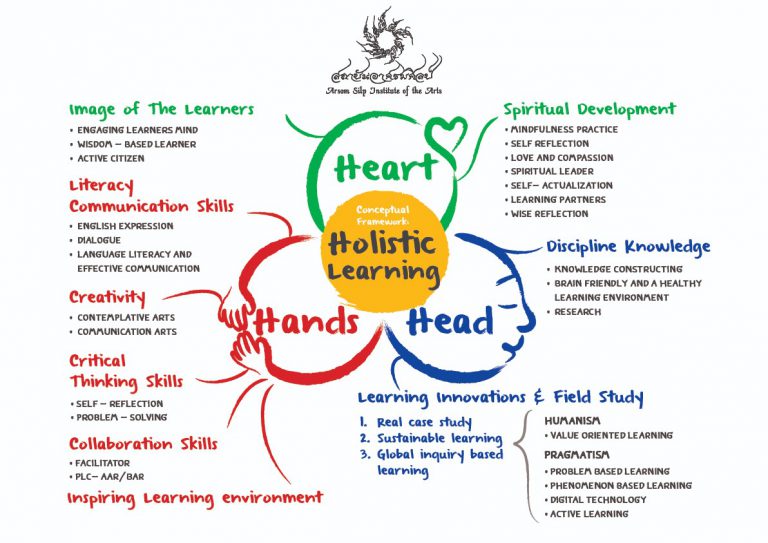 สถาบันอาศรมศิลป์
Arsom Silp Institute of the Arts
Image of The Learners
• ENGAGING LEARNERS MIND
• WISDOM – BASED LEARNER
• ACTIVE CITIZEN
Literacy
Communication Skills
• ENGLISH EXPRESSION
• DIALOGUE
• LANGUAGE LITERACY AND
EFFECTIVE COMMUNICATION
Creativity
• CONTEMPLATIVE ARTS
• COMMUNICATION ARTS
Critical
Thinking Skills
• SELF – REFLECTION
• PROBLEM – SOLVING
Collaboration Skills
• FACILITATOR
• PLC– AAR/BAR
Inspiring Learning environment
Heart
Conceptual
Framework:
Holistic
Learning
Hands
Head
Spiritual Development
• MINDFULNESS PRACTICE
• SELF REFLECTION
• LOVE AND COMPASSION
• SPIRITUAL LEADER
• SELF– ACTUALIZATION
• LEARNING PARTNERS
• WISE REFLECTION
Discipline Knowledge
• KNOWLEDGE CONSTRUCTING
• BRAIN FRIENDLY AND A HEALTHY
LEARNING ENVIRONMENT
• RESEARCH
Learning Innovations & Field Study
1. Real case study
2. Sustainable learning
3. Global inquiry based
learning
HUMANISM
• VALUE ORIENTED LEARNING
PRAGMATISM
• PROBLEM BASED LEARNING
• PHENOMENON BASED LEARNING
• DIGITAL TECHNOLOGY
• ACTIVE LEARNING